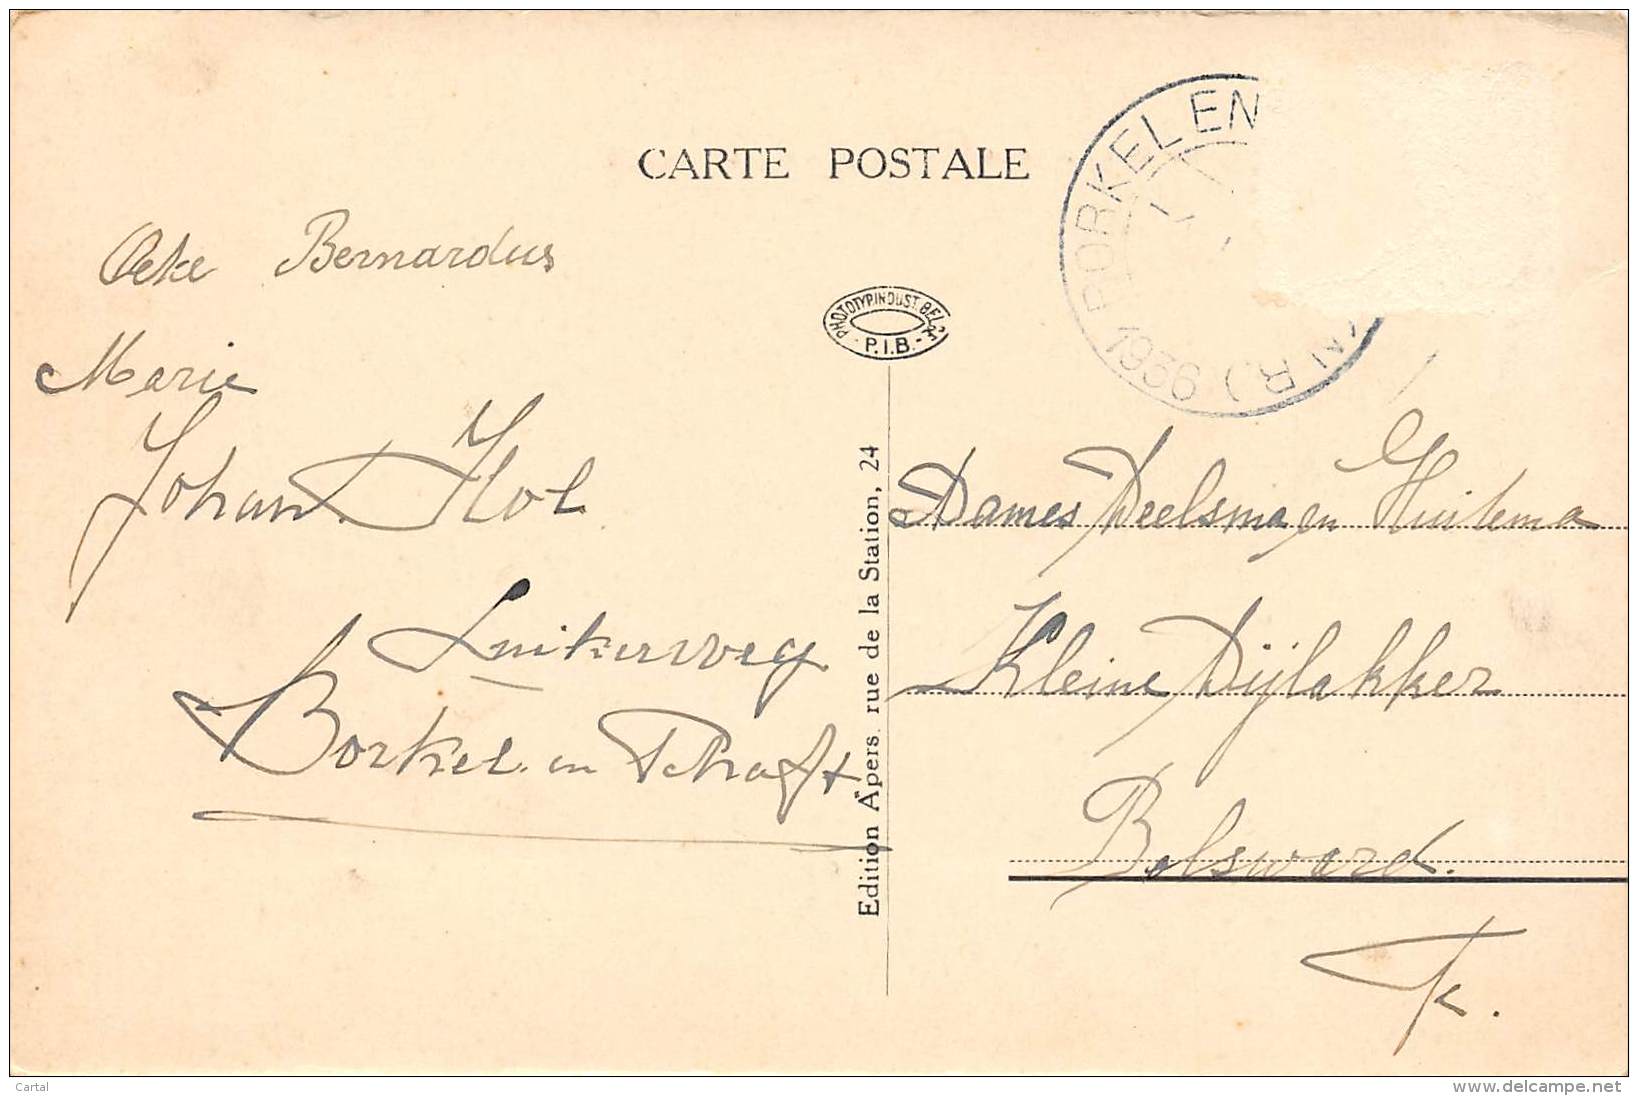 CARTE POSTALE
BORKEL EN
1936
(N.BR.)
PHOTOTYP. INDUST. BELGE
- P.I.B. -
Bernardus
Marie
Johan Hol
Luikerweg
Borkel en Schaft
Edition Apers. rue de la Station, 24
Dames Deelsma en Huitema
Kleine Dijlakker
Bolsward.
Fr.
Cartal
www.delcampe.net